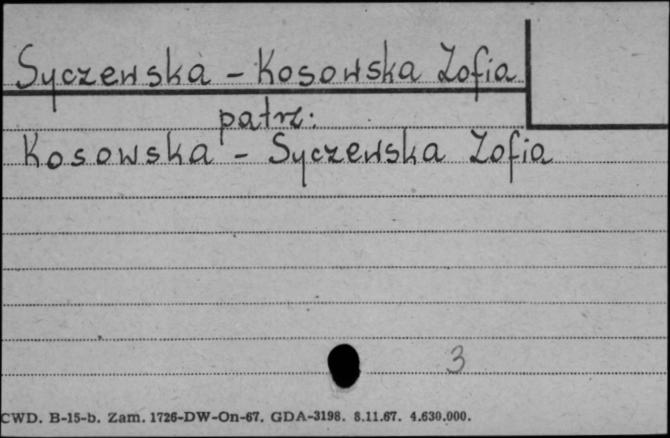 Syczewska - Kosowska Zofia
patrz:
Kosowska - Syczewska Zofia
3
CWD. B-15-b. Zam. 1726-DW-On-67. GDA-3198. 8.11.67. 4.630.000.